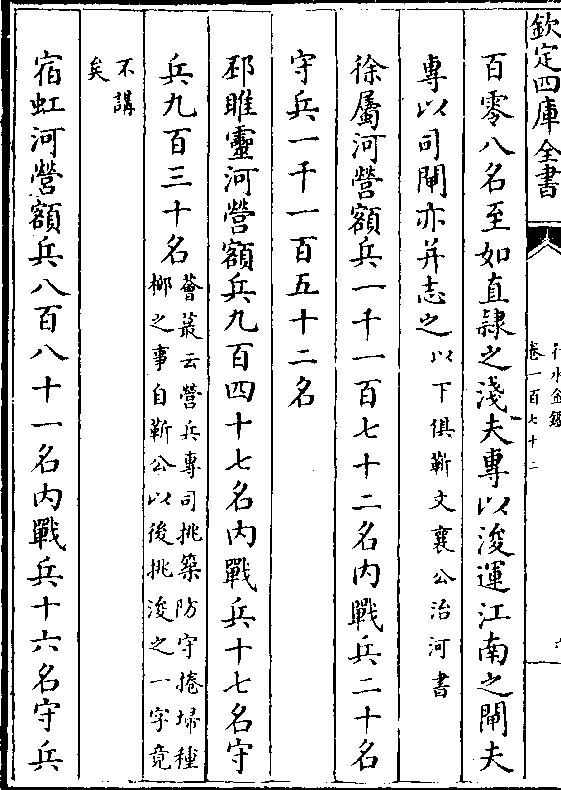 欽定四庫全書
行水金鑑
卷一百七十二
百零八名至如直隸之淺夫專以浚運江南之閘夫
專以司閘亦并志之以下俱靳文襄公治河書
徐屬河營額兵一千一百七十二名內戰兵二十名
守兵一千一百五十二名
邳睢靈河營額兵九百四十七名內戰兵十七名守
兵九百三十名薈蕞云營兵專司挑築防守捲埽種
柳之事自靳公以後挑浚之一字竟
不講
矣
宿虹河營額兵八百八十一名內戰兵十六名守兵